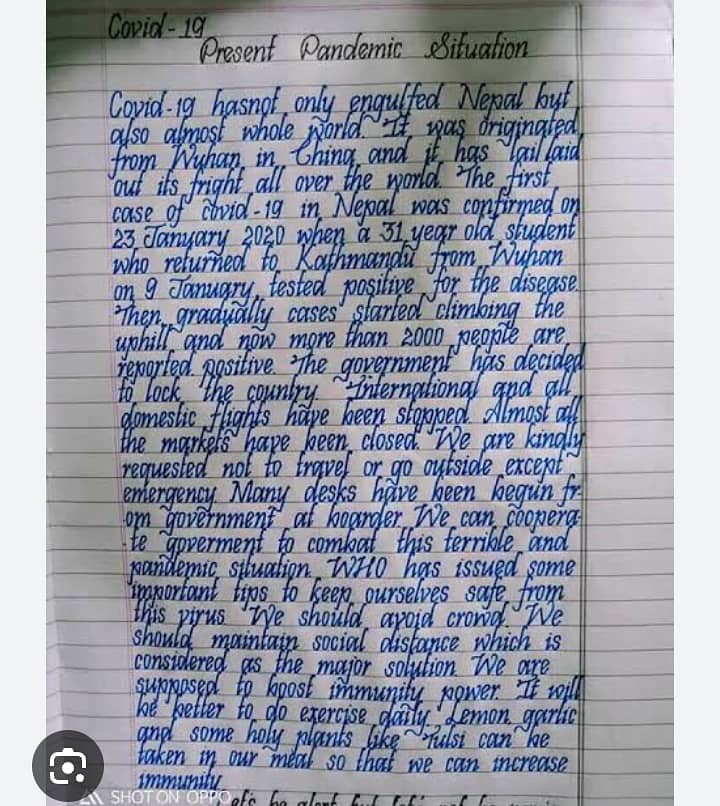 Covid-19
Present Pandemic Situation
Covid-19 hasnot only engulfed Nepal but
also almost whole world. It was originated
from Wuhan in China and it has laid
out its fright all over the world. The first
case of covid-19 in Nepal was confirmed on
23 January 2020 when a 31 year old student
who returned to Kathmandu from Wuhan
on 9 January, tested positive for the disease.
Then gradually cases started climbing the
uphill and now more than 2000 people are
reported positive. The government has decided
to lock the country. International and all
domestic flights have been stopped. Almost all
the markets have been closed. We are kindly
requested not to travel or go outside except
emergency. Many desks have been begun fr-
om government at boarder. We can coopera-
te goverment to combat this terrible and
pandemic situation. WHO has issued some
important tips to keep ourselves safe from
this virus. We should avoid crowd. We
should maintain social distance which is
considered as the major solution. We are
supposed to boost immunity power. It will
be better to do exercise daily. Lemon, garlic
and some holy plants like Tulsi can be
taken in our meal so that we can increase
immunity.
SHOT ON OPPO
be alert but